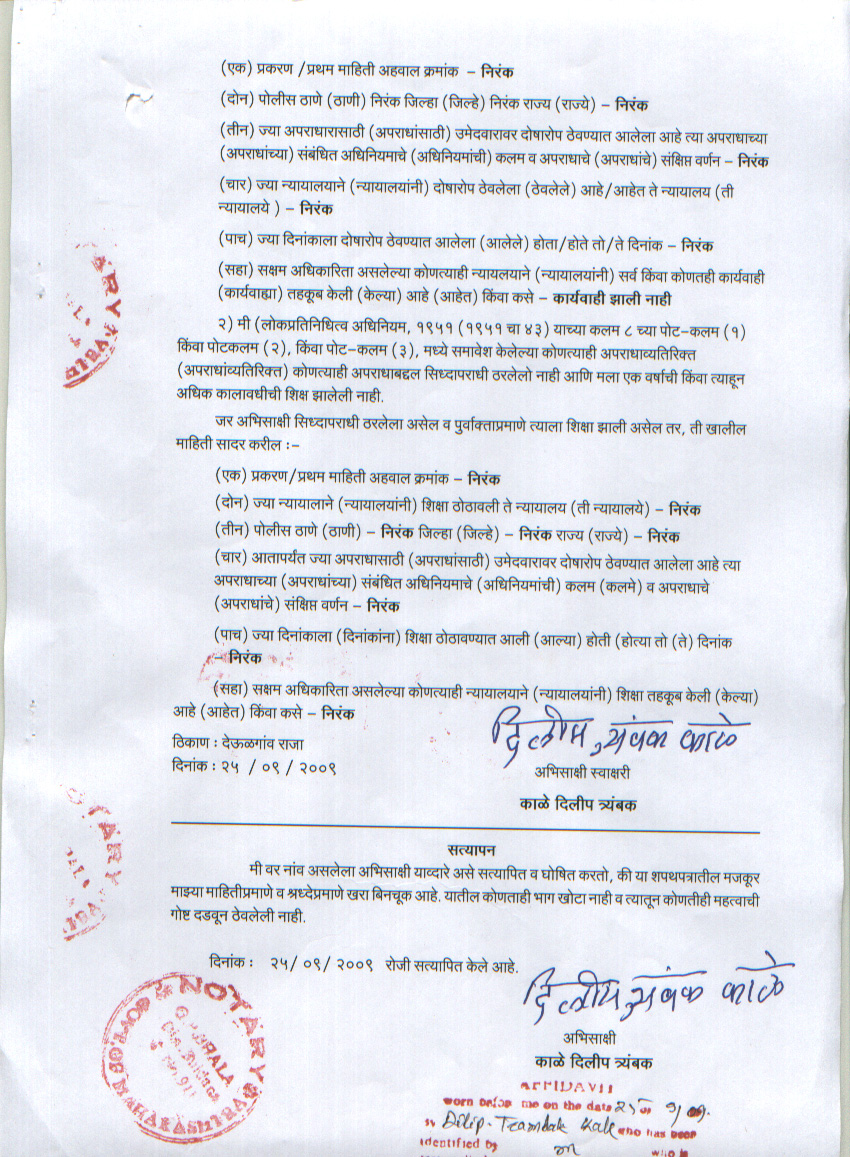 (एक) प्रकरण /प्रथम माहिती अहवाल क्रमांक – निरंक
(दोन) पोलीस ठाणे (ठाणी) निरंक जिल्हा (जिल्हे) निरंक राज्य (राज्ये) – निरंक
(तीन) ज्या अपराधारासाठी (अपराधांसाठी) उमेदवारावर दोषारोप ठेवण्यात आलेला आहे त्या अपराधाच्या
(अपराधांच्या) संबंधित अधिनियमाचे (अधिनियमांची) कलम व अपराधाचे (अपराधांचे) संक्षिप्त वर्णन – निरंक
(चार) ज्या न्यायालयाने (न्यायालयांनी) दोषारोप ठेवलेला (ठेवलेले) आहे/आहेत ते न्यायालय (ती
न्यायालये ) – निरंक
(पाच) ज्या दिनांकाला दोषारोप ठेवण्यात आलेला (आलेले) होता/होते तो/ते दिनांक – निरंक
(सहा) सक्षम अधिकारिता असलेल्या कोणत्याही न्यायलयाने (न्यायालयांनी) सर्व किंवा कोणतही कार्यवाही
(कार्यवाह्या) तहकूब केली (केल्या) आहे (आहेत) किंवा कसे – कार्यवाही झाली नाही
२) मी (लोकप्रतिनिधित्व अधिनियम, १९५१ (१९५१ चा ४३) याच्या कलम ८ च्या पोट-कलम (१)
किंवा पोटकलम (२), किंवा पोट-कलम (३), मध्ये समावेश केलेल्या कोणत्याही अपराधाव्यतिरिक्त
(अपराधांव्यतिरिक्त) कोणत्याही अपराधाबद्दल सिध्दापराधी ठरलेलो नाही आणि मला एक वर्षाची किंवा त्याहून
अधिक कालावधीची शिक्ष झालेली नाही.
जर अभिसाक्षी सिध्दापराधी ठरलेला असेल व पुर्वाक्ताप्रमाणे त्याला शिक्षा झाली असेल तर, ती खालील
माहिती सादर करील :-
(एक) प्रकरण/प्रथम माहिती अहवाल क्रमांक – निरंक
(दोन) ज्या न्यायालाने (न्यायालयांनी) शिक्षा ठोठावली ते न्यायालय (ती न्यायालये) – निरंक
(तीन) पोलीस ठाणे (ठाणी) – निरंक जिल्हा (जिल्हे) – निरंक राज्य (राज्ये) – निरंक
(चार) आतापर्यंत ज्या अपराधासाठी (अपराधांसाठी) उमेदवारावर दोषारोप ठेवण्यात आलेला आहे त्या
अपराधाच्या (अपराधांच्या) संबंधित अधिनियमाचे (अधिनियमांची) कलम (कलमे) व अपराधाचे
(अपराधांचे) संक्षिप्त वर्णन – निरंक
(पाच) ज्या दिनांकाला (दिनांकांना) शिक्षा ठोठावण्यात आली (आल्या) होती (होत्या तो (ते) दिनांक
– निरंक
(सहा) सक्षम अधिकारिता असलेल्या कोणत्याही न्यायालयाने (न्यायालयांनी) शिक्षा तहकूब केली (केल्या)
आहे (आहेत) किंवा कसे – निरंक
दिलीप त्र्यंबक काळे
ठिकाण : देऊळगांव राजा
दिनांक : २५ / ०९ / २००९
अभिसाक्षी स्वाक्षरी
काळे दिलीप त्र्यंबक
सत्यापन
मी वर नांव असलेला अभिसाक्षी याव्दारे असे सत्यापित व घोषित करतो, की या शपथपत्रातील मजकूर
माझ्या माहितीप्रमाणे व श्रध्देप्रमाणे खरा बिनचूक आहे. यातील कोणताही भाग खोटा नाही व त्यातून कोणतीही महत्वाची
गोष्ट दडवून ठेवलेली नाही.
दिनांक : २५/ ०९/ २००९ रोजी सत्यापित केले आहे.
दिलीप त्र्यंबक काळे
अभिसाक्षी
काळे दिलीप त्र्यंबक
NOTARY
GOVT. OF MAHARASHTRA
AFFIDAVIT
worn before me on the date 25 9/09.
Dilip. Teambak Kale who has been
identified by
who is